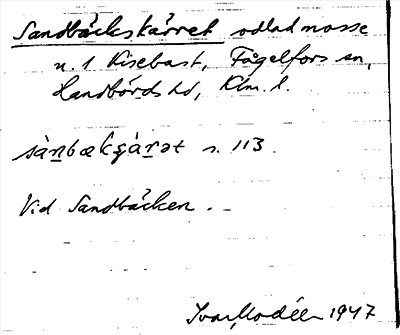 Sandbäckskärret odlad mosse
n. 1 Kisebast, Fågelfors sn,
Handbörds hd, Klm. l.
sàn̲bækʂàr̲ət s. 113.
Vid Sandbäcken.
Ivar Modéer 1947